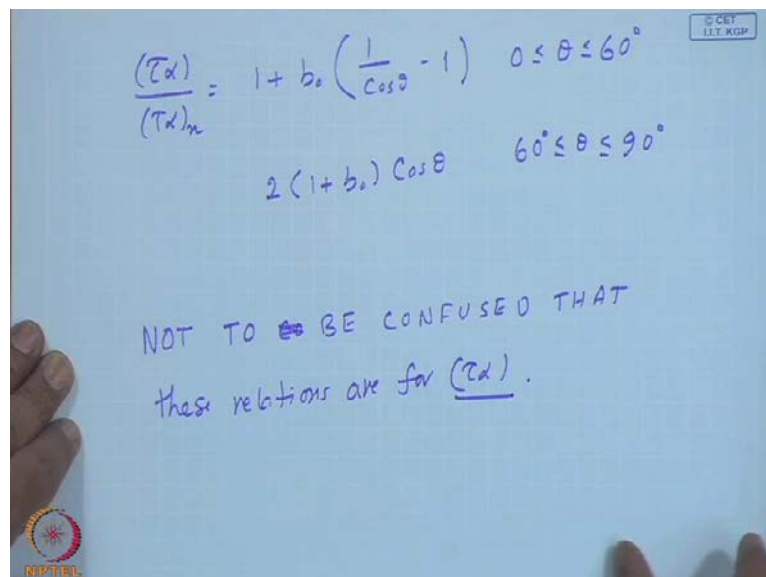 © CET
I.I.T. KGP
(τα) / (τα)n = 1 + b₀ ( 1 / Cosθ - 1 ) 0 ≤ θ ≤ 60°
2 (1 + b₀) Cosθ 60° ≤ θ ≤ 90°
NOT TO BE CONFUSED THAT
these relations are for (τα).
NPTEL